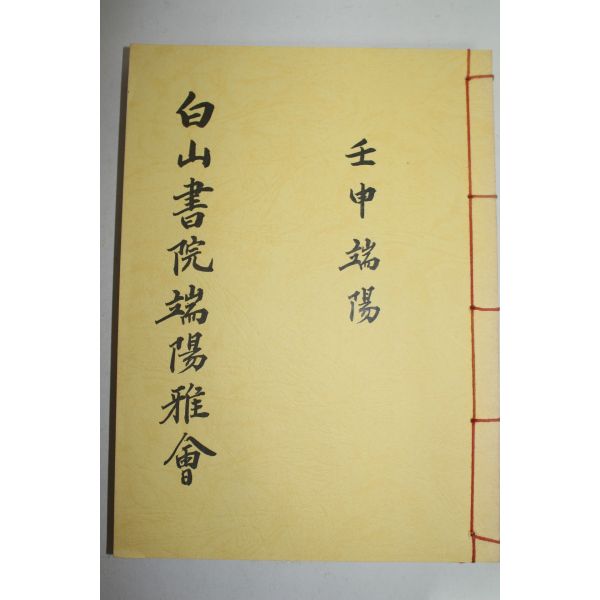 壬申端陽
白山書院端陽雅會